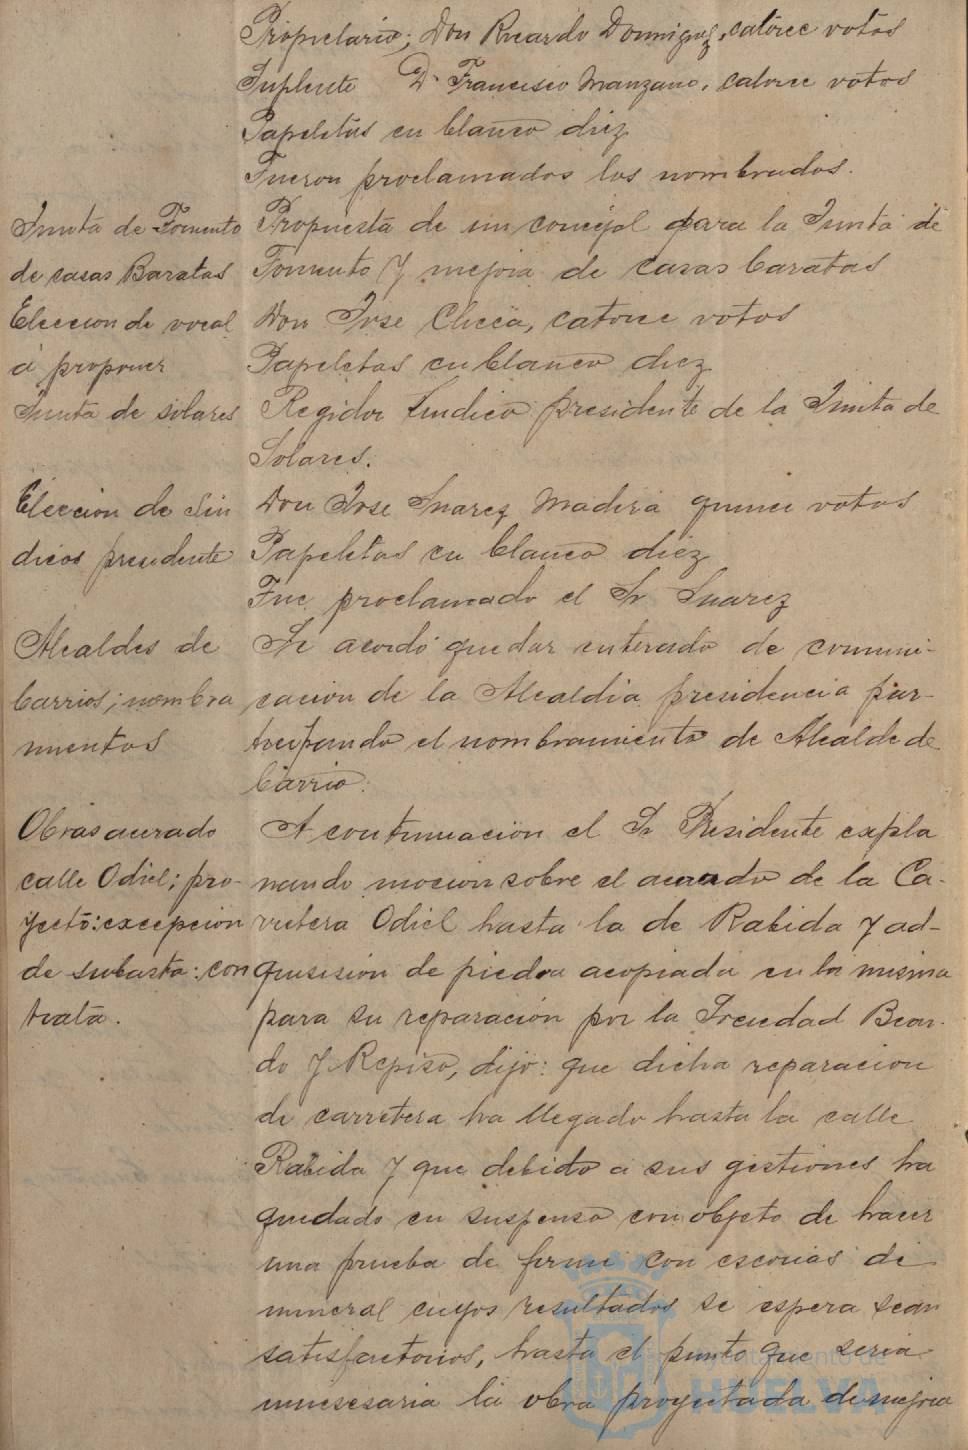 Propietario; Don Ricardo Domingez, catorce votos
Suplente D. Francisco Manzano, catorce votos
Papeletas en blanco diez
Fueron proclamados los nombrados.
Junta de Fomento
de casas Baratas
Eleccion de vocal
á proponer
Propuesta de un concejal para la Junta de
Fomento y mejora de casas baratas
Don Jose Checa, catorce votos
Papeletas en blanco diez
Junta de solares
Regidor Sindico presidente de la Junta de
Solares.
Eleccion de Sin
dicos presidente
Don Jose Suarez Madera quince votos
Papeletas en blanco diez
Fue proclamado el Sr Suarez
Alcaldes de
barrios; nombra
mientos
Se acordó quedar enterado de comuni-
cacion de la Alcaldia presidencia par-
ticipando el nombramiento de Alcalde de
barrio.
Obras acerado
calle Odiel; pro-
yecto: excepcion
de subasta: con
trata.
A continuacion el Sr Presidente expla
nando mocion sobre el acerado de la Ca-
rretera Odiel hasta la de Rabida y ad-
quisision de piedra acopiada en la misma
para su reparacion por la Sociedad
y Repiso, dijo: que dicha reparacion
de carretera ha llegado hasta la calle
Rabida y que debido a sus gestiones ha
quedado en suspenso con objeto de hacer
una prueba de firme con escorias de
mineral cuyos resultados se espera sean
satisfactorios, hasta el punto que seria
innesesaria la obra proyectada de mejora
Ayuntamiento de
HUELVA